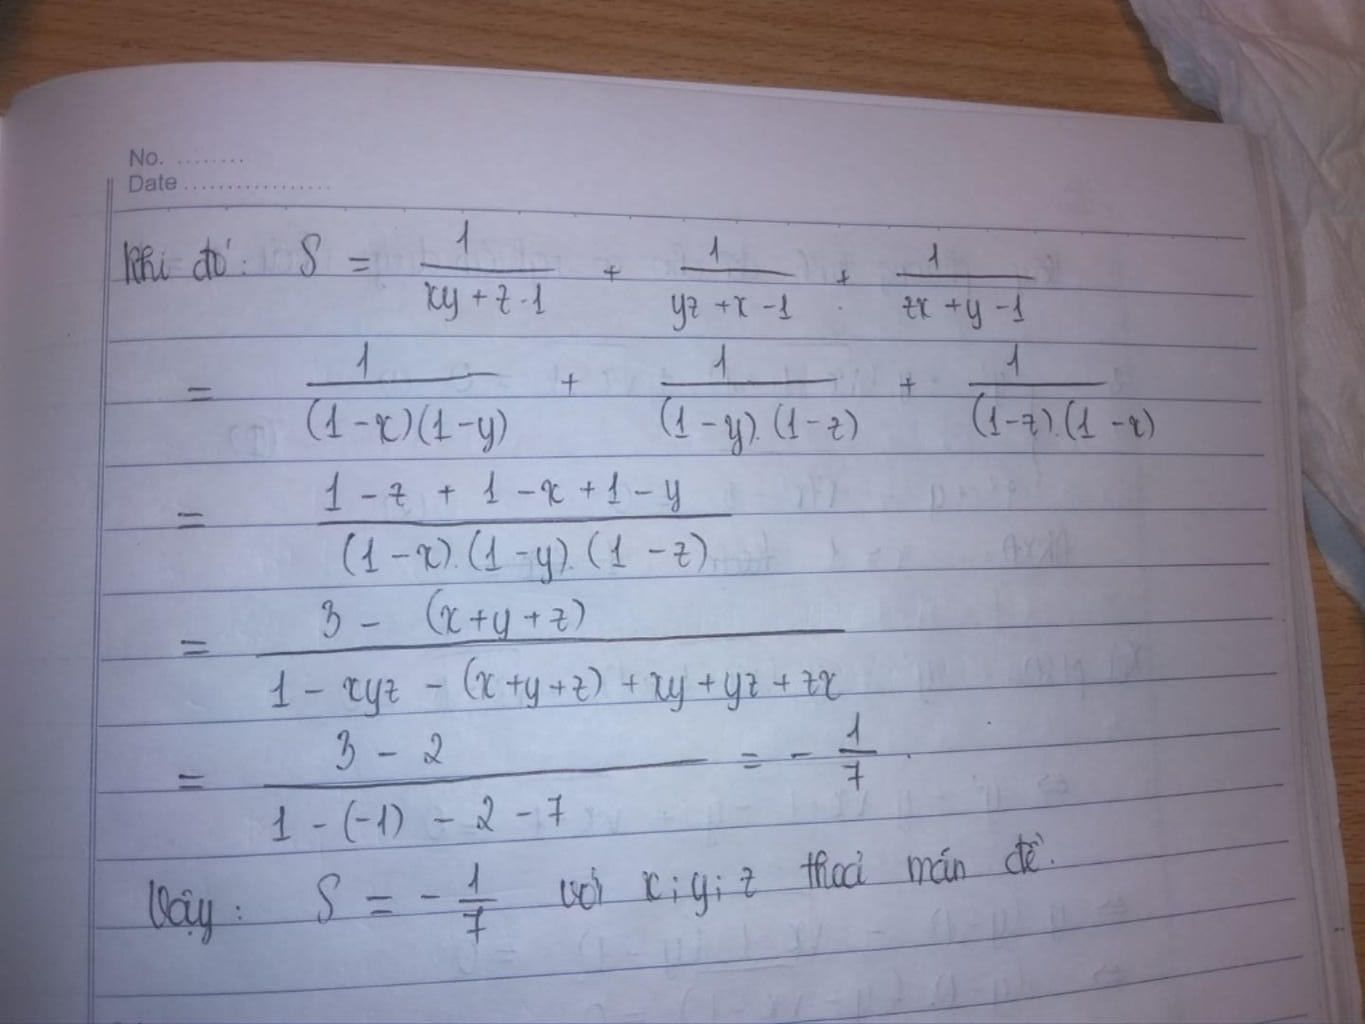 No. ........
Date .................
Khi đó: S = 1/(xy + z - 1) + 1/(yz + x - 1) + 1/(zx + y - 1)
= 1/((1 - x)(1 - y)) + 1/((1 - y).(1 - z)) + 1/((1 - z).(1 - x))
= (1 - z + 1 - x + 1 - y)/((1 - x).(1 - y).(1 - z))
= (3 - (x + y + z))/(1 - xyz - (x + y + z) + xy + yz + zx)
= (3 - 2)/(1 - (-1) - 2 - 7) = - 1/7.
Vậy: S = - 1/7 với x; y; z thoả mãn đề.